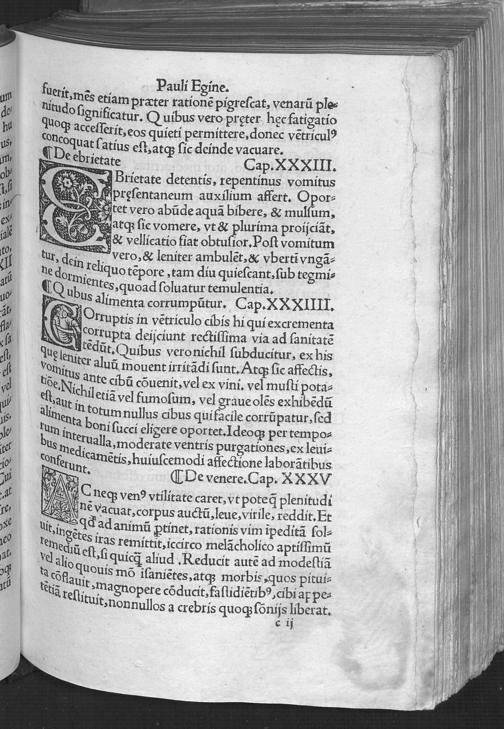 Pauli Egine.
fuerit, mẽs etiam præter rationẽ pigrescat, venarũ ple-
nitudo significatur. Quibus vero pręter hęc fatigatio
quoqꝫ accesserit, eos quieti permittere, donec vẽtriculꝰ
concoquat satius est, atqꝫ sic deinde vacuare.
¶ De ebrietate Cap. XXXIII.
EBrietate detentis, repentinus vomitus
pręsentaneum auxilium affert. Opor-
tet vero abũde aquã bibere, & mulsum,
atqꝫ sic vomere, vt & plurima proijciãt,
& vellicatio fiat obtusior. Post vomitum
vero, & leniter ambulẽt, & vberti vngã-
tur, dein reliquo tẽpore, tam diu quiescant, sub tegmi-
ne dormientes, quoad soluatur temulentia.
¶ Qubus alimenta corrumpũtur. Cap. XXXIIII.
COrruptis in vẽtriculo cibis hi qui excrementa
corrupta deijciunt rectissima via ad sanitatẽ
tẽdũt. Quibus vero nichil subducitur, ex his
que leniter aluũ mouent irritãdi sunt. Atqꝫ sic affectis,
vomitus ante cibũ cõuenit, vel ex vini. vel musti pota-
tiõe. Nichil etiã vel fumosum, vel graue olẽs exhibẽdũ
est, aut in totum nullus cibus qui facile corrũpatur, sed
alimenta boni succi eligere oportet. Ideoqꝫ per tempo-
rum interualla, moderate ventris purgationes, ex leui-
bus medicamẽtis, huiuscemodi affectione laborãtibus
conferunt. ¶ De venere. Cap. XXXV
AC neqꝫ venꝰ vtilitate caret, vt poteqꝫ plenitudi
nẽ vacuat, corpus auctũ, leue, virile, reddit. Et
qđ ad animũ ꝑtinet, rationis vim ipeditã sol-
uit, ingẽtes iras remittit, iccirco melãcholico aptissimũ
remediũ est, si quicꝙ aliud. Reducit autẽ ad modestiã
vel alio quouis mõ ĩsaniẽtes, atqꝫ morbis, quos pitui-
ta cõflauit, magnopere cõducit, fastidiẽtibꝰ, cibi appe-
tẽtiã restituit, nonnullos a crebris quoqꝫ sõnijs liberat.
c ij